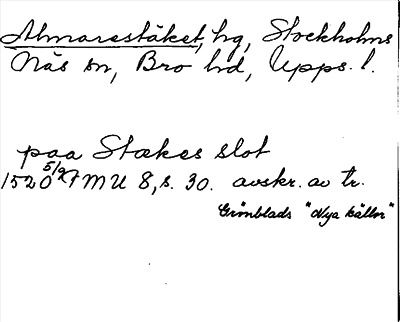 Almarestäket, hg, Stockholms
Näs sn, Bro hd, Upps. l.
paa Stækes slot
1520 5/2 FMU 8, s. 30. avskr. av tr.
Grönblads "Nya källor"